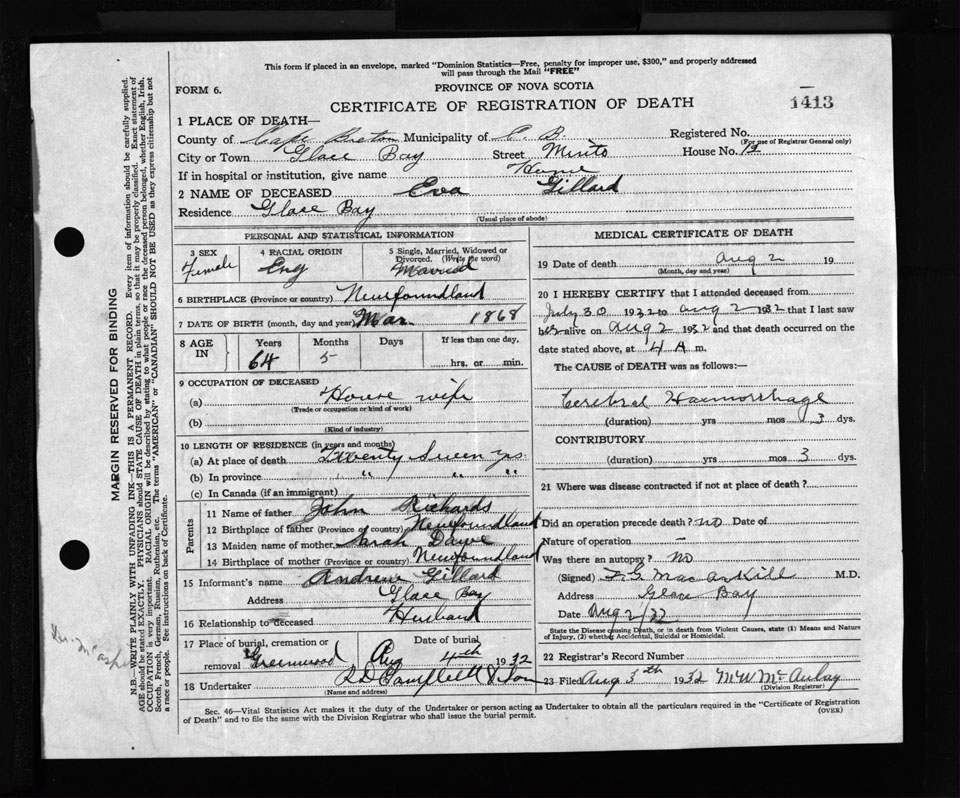 This form if placed in an envelope, marked "Dominion Statistics—Free, penalty for improper use, $300," and properly addressed
will pass through the Mail "FREE"
FORM 6.
PROVINCE OF NOVA SCOTIA
CERTIFICATE OF REGISTRATION OF DEATH
1413
1 PLACE OF DEATH—
County of Cape Breton Municipality of C. B. Registered No.
(For use of Registrar General only)
City or Town Glace Bay Street Minto House No. 19
If in hospital or institution, give name Home
2 NAME OF DECEASED Eva Gillard
Residence Glace Bay
(Usual place of abode)
PERSONAL AND STATISTICAL INFORMATION
3 SEX Female
4 RACIAL ORIGIN Eng
5 Single, Married, Widowed or
Divorced. (Write the word)
Married
6 BIRTHPLACE (Province or country) Newfoundland
7 DATE OF BIRTH (month, day and year) Mar. 1868
8 AGE IN
Years 64
Months 5
Days
If less than one day,
hrs. or min.
9 OCCUPATION OF DECEASED
(a) House wife
(Trade or occupation or kind of work)
(b)
(Kind of industry)
10 LENGTH OF RESIDENCE (in years and months)
(a) At place of death Twenty Seven yrs
(b) In province " " "
(c) In Canada (if an immigrant)
Parents
11 Name of father John Richards
12 Birthplace of father (Province or country) Newfoundland
13 Maiden name of mother Sarah
14 Birthplace of mother (Province or country) Newfoundland
15 Informant's name Andrew Gillard
Address Glace Bay
16 Relationship to deceased Husband
17 Place of burial, cremation or
removal Greenwood
Date of burial
Aug 4th 1932
18 Undertaker R D Campbell & Son
(Name and address)
MEDICAL CERTIFICATE OF DEATH
19 Date of death Aug 2 19
(Month, day and year)
20 I HEREBY CERTIFY that I attended deceased from
July 30 1932 to Aug 2 1932 that I last saw
her alive on Aug 2 1932 and that death occurred on the
date stated above, at 4 A m.
The CAUSE of DEATH was as follows:—
Cerebral Haemorrhage
(duration) yrs mos 3 dys.
CONTRIBUTORY
(duration) yrs mos 3 dys.
21 Where was disease contracted if not at place of death?
Did an operation precede death? no Date of
Nature of operation —
Was there an autopsy? No
(Signed) MacAskill M.D.
Address Glace Bay
Date Aug 2/32
State the Disease causing Death, or in death from Violent Causes, state (1) Means and Nature
of Injury, (2) whether Accidental, Suicidal or Homicidal.
22 Registrar's Record Number
23 Filed Aug 5th 1932 M W McAulay
(Division Registrar)
Sec. 46—Vital Statistics Act makes it the duty of the Undertaker or person acting as Undertaker to obtain all the particulars required in the "Certificate of Registration
of Death" and to file the same with the Division Registrar who shall issue the burial permit.
(OVER)
MARGIN RESERVED FOR BINDING
N.B.—WRITE PLAINLY WITH UNFADING INK—THIS IS A PERMANENT RECORD. Every item of information should be carefully supplied.
AGE should be stated EXACTLY. PHYSICIANS should STATE CAUSE OF DEATH in plain terms, so that it may be properly classified. Exact statement of
OCCUPATION is very important. RACIAL ORIGIN will be described by stating to what people or race the deceased person belonged, whether English, Irish,
Scotch, French, German, Russian, Ruthenian, etc. The terms "AMERICAN" or "CANADIAN" SHOULD NOT BE USED as they express citizenship but not
a race or people. See instructions on back of Certificate.